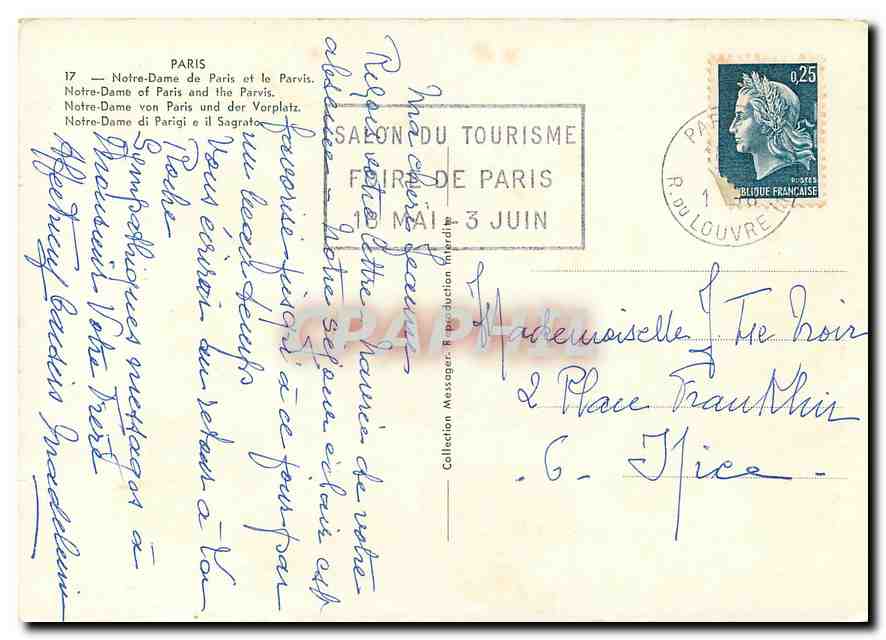 PARIS
17 — Notre-Dame de Paris et le Parvis.
Notre-Dame of Paris and the Parvis.
Notre-Dame von Paris und der Vorplatz.
Notre-Dame di Parigi e il Sagrato.
SALON DU TOURISME
FOIRE DE PARIS
MAI - 3 JUIN
PAR
R. DU LOUVRE
0,25
POSTES
RÉPUBLIQUE FRANÇAISE
Ma chère Jeanne
Reçu votre lettre navrée de votre
absence - Notre séjour éclair est
favorisé jusqu'à ce jour par
un beau temps
Vous écrirai au retour à La
Roche
Sympathiques messages à
Monsieur Votre Frère
Affectueux baisers Madeleine
Collection Messager. Reproduction interdite
CPAPHIL
Mademoiselle J. Noir
2 Place Franklin
06 - Nice -